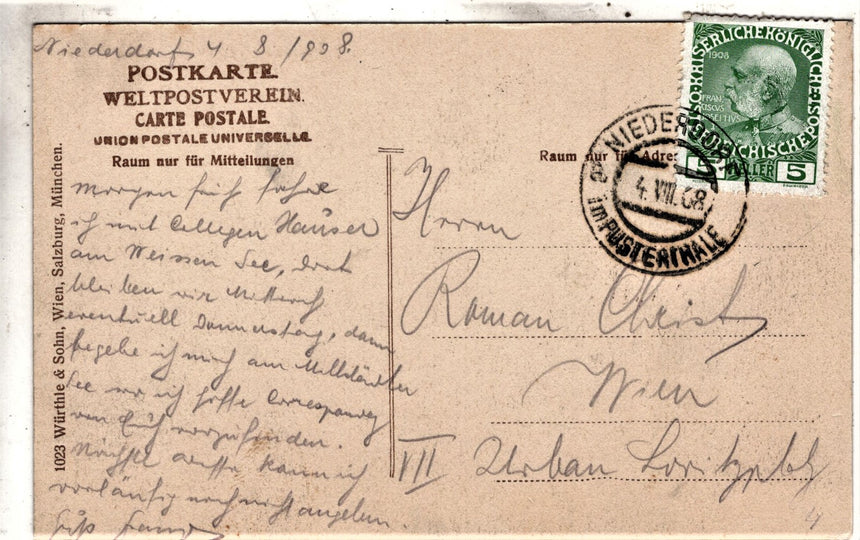 Niederdorf, 4 8 /908.
POSTKARTE.
WELTPOSTVEREIN.
CARTE POSTALE.
UNION POSTALE UNIVERSELLE.
Raum nur für Mitteilungen
morgen früh fahre
ich mit Collegen Hauser
am Weissen See, dort
bleiben wir Mittwoch
eventuell Donnerstag, dann
begebe ich mich am Millstädter
See wo ich hoffe Correspondenz
von Euch vorzufinden.
Nächste kann ich
vorläufig noch nicht angeben.
1023 Würthle & Sohn, Wien, Salzburg, München.
Raum nur für Adresse
KAISERLICHEKÖNIGLICHE
ÖSTERREICHISCHEPOST
1908
FRAN
CISCVS
IOSEPHVS
5 HELLER 5
NIEDERDORF
4. VIII. 08
im PUSTERTHALE
Herrn
Roman Christ
Wien
VII Urban Loritzplatz
4